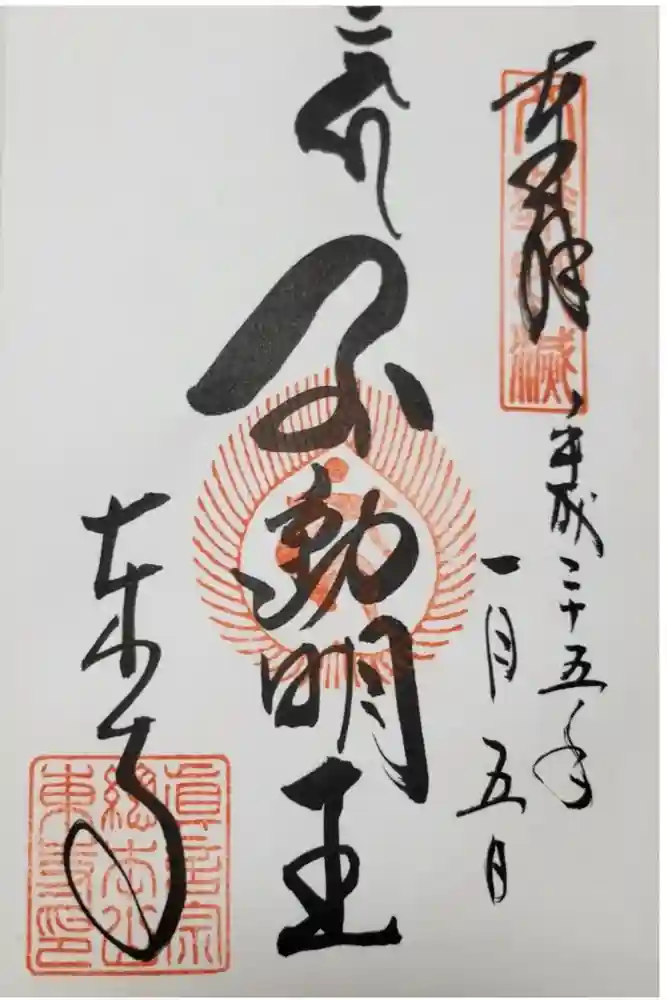 奉拝
平成二十五年
一月五日
不動明王
東寺
眞言宗
總本山
東寺印